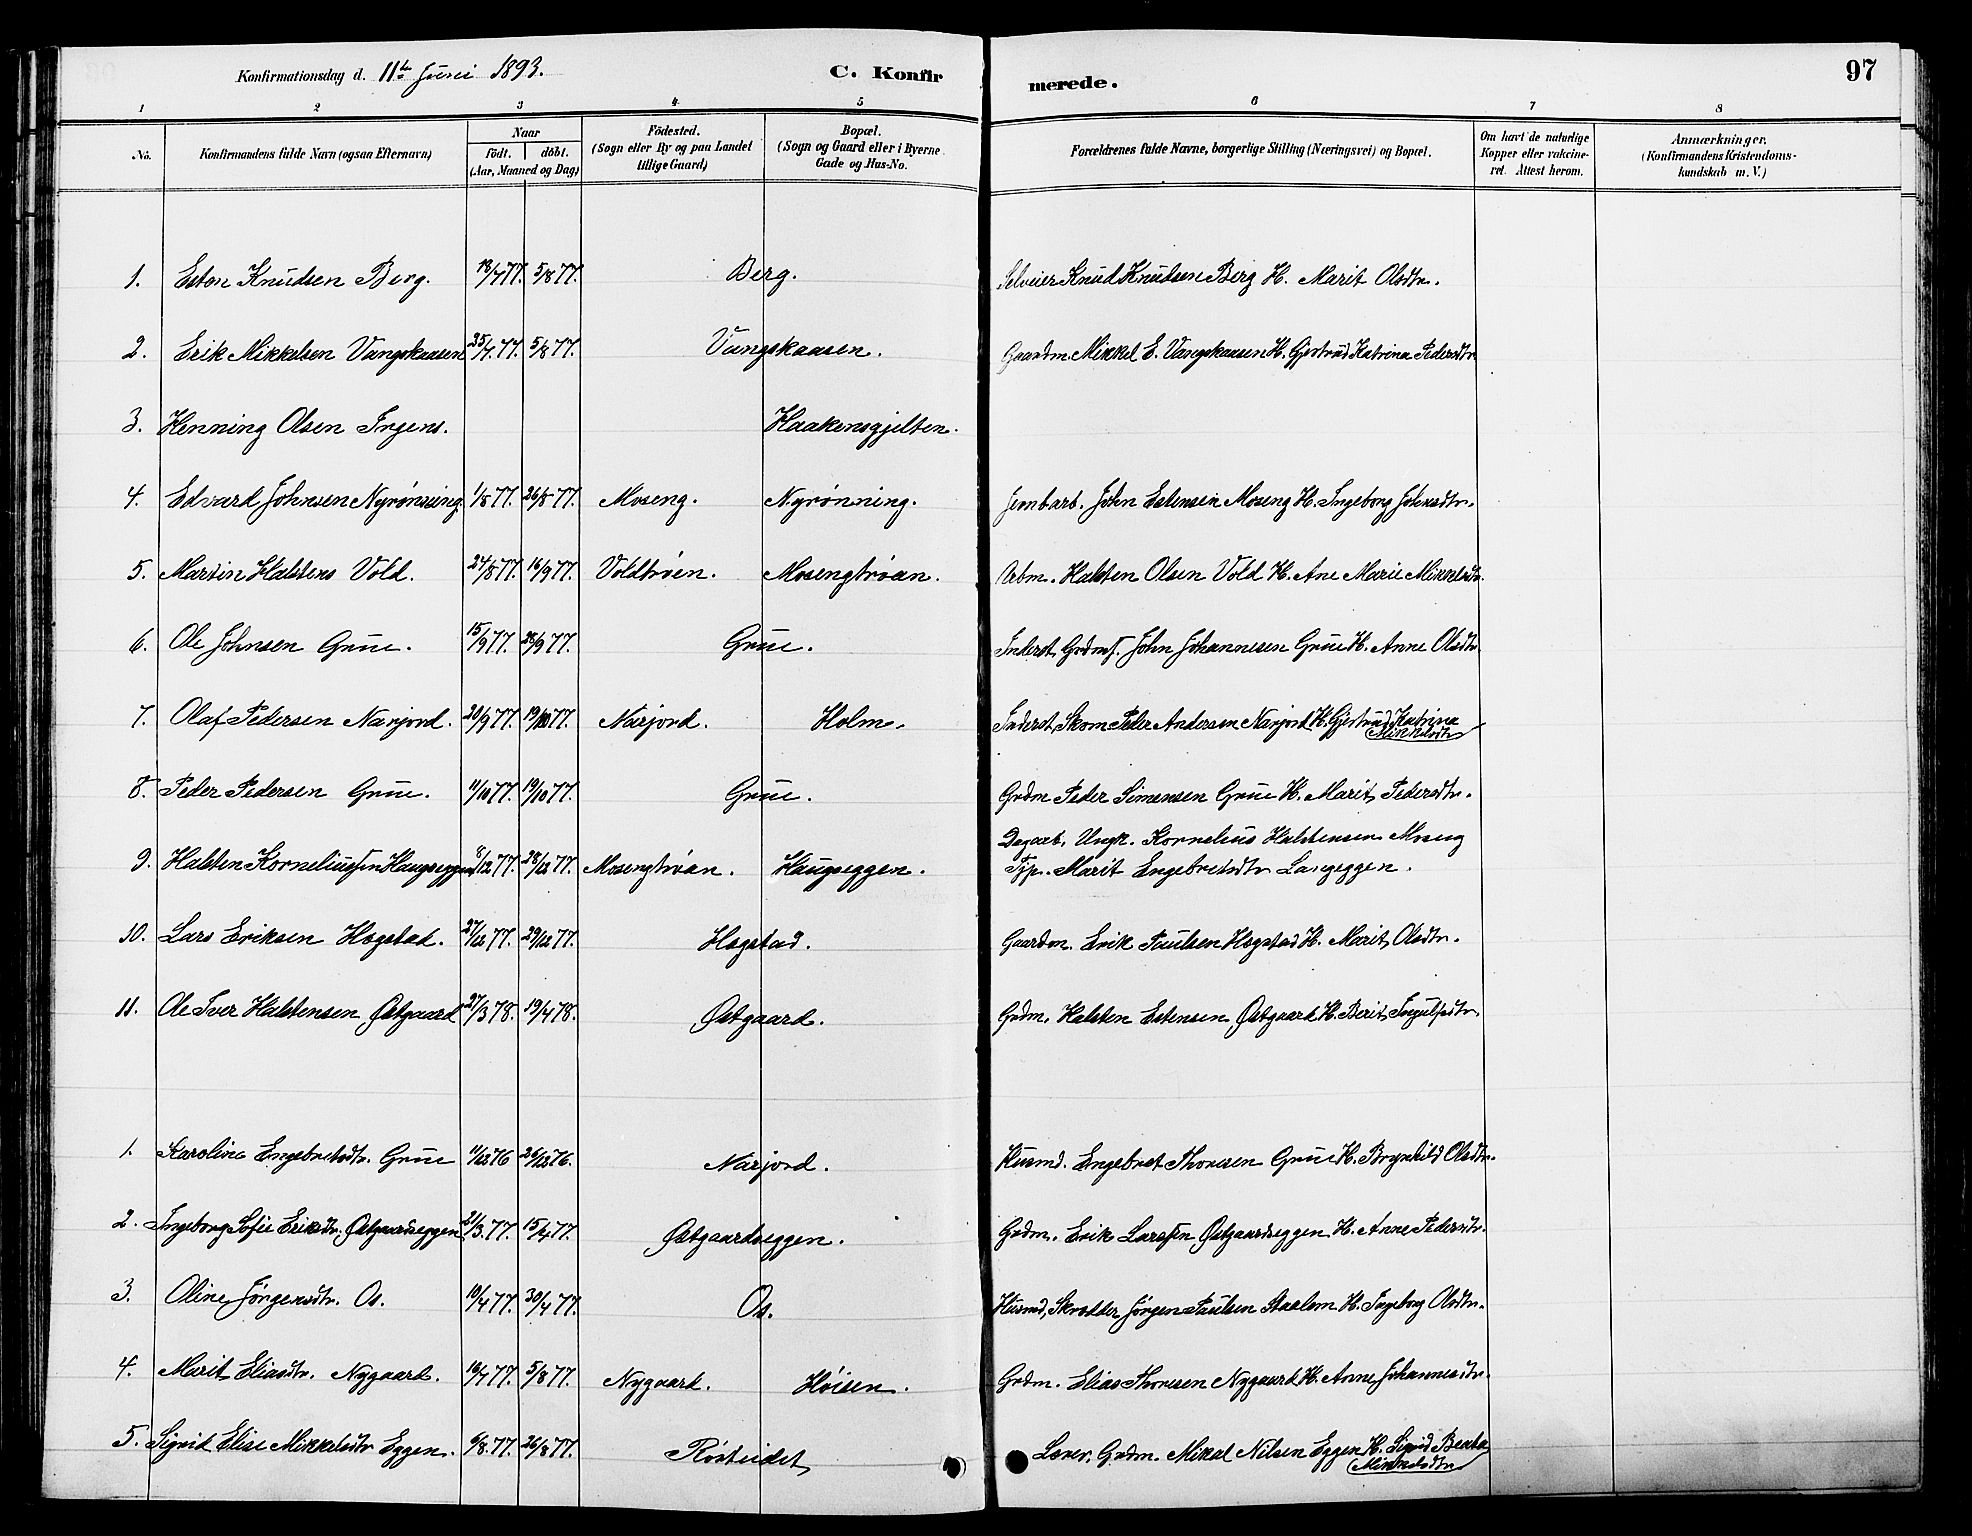 Konfirmationsdag d. 11te Juni 1893.
C. Konfirmerede.
97
1 2 3 4 5 6 7 8
No.
Konfirmandens fulde Navn (ogsaa Efternavn)
Naar
födt. döbt.
(Aar, Maaned og Dag)
Födested.
(Sogn eller By og paa Landet
tillige Gaard)
Bopæl.
(Sogn og Gaard eller i Byerne
Gade og Hus-No.
Forældrenes fulde Navne, borgerlige Stilling (Næringsvei) og Bopæl.
Om havt de naturlige
Kopper eller vakcine-
ret. Attest herom.
Anmærkninger.
(Konfirmandens Kristendoms-
kundskab m. V.)
1. Esten Knudsen Berg. 18/7 77. 5/8 77. Berg. Selveier Knud Knudsen Berg H. Marit Olsdtr.
2. Erik Mikkelsen Vangskaasen 25/7 77. 5/8 77. Vangskaasen. Gaardm. Mikkel E. Vangskaasen H. Gjertrud Katrina Pedersdtr
3. Henning Olsen Irgens. Haakensgjelten.
4. Edvard Johnsen Nyrønning 1/8 77. 26/8 77. Moseng. Nyrönning. Jernbarb. John Estensen Moseng H. Ingeborg Johnsdtr.
5. Martin Halstens Vold. 24/8 77. 16/9 77. Voldtrøen. Mosengtrøan. Arbm. Halsten Olsen Vold H. Ane Marie Mikkelsdtr.
6. Ole Johnsen Grue. 15/9 77. 28/9 77. Grue. Inderst, Grdmf. John Johannesen Grue H. Anne Olsdtr
7. Olaf Pedersen Narjord. 20/9 77. 19/10 77. Narjord. Holm. Inderst, Skom Peder Andersen Narjord H. Gjertrud Katrina
Mikkelsdtr
8. Peder Pedersen Grue. 11/10 77. 19/10 77. Grue. Grdm Peder Simensen Grue H. Marit Pedersdtr.
Dagarb. Ungk. Kornelius Halstensen Moseng
9. Halsten Korneliussen Haugseggen 8/12 77. 28/12 77. Mosengtrøan. Haugseggen. Pige. Marit Engebretsdtr Langeggen.
10. Lars Eriksen Hogstad. 27/12 77. 29/12 77. Hogstad. Gaardm. Erik Paulsen Hogstad H. Marit Olsdtr.
11. Ole Iver Halstensen Østgaard 27/3 78. 19/4 78. Østgaard. Grdm. Halsten Estensen Østgaard H. Berit Ingulfsdtr.
1. Karoline Engebretsdtr. Grue 11/12 76 26/12 76. Narjord. Husmd. Engebret Thoresen Grue H. Brynhild Olsdtr.
2. Ingeborg Sofie Eriksdtr. Østgaardseggen 21/3 77. 15/4 77. Østgaardseggen. Grdm. Erik Larssen Østgaardseggen H. Anne Pedersdtr.
3. Oline Jörgensdtr. Os. 10/4 77. 30/4 77. Os. Husmd, Skrædder Jörgen Paulsen H. Ingeborg Olsdtr.
4. Marit Eliasdtr. Nygaard. 16/7 77. 5/8 77. Nygaard. Höisen. Grdm. Elias Thoresen Nygaard H. Anne Johannesdtr.
5. Sigrid Elise Mikkelsdtr Eggen. 6/8 77. 26/8 77. Rösteidet Lærer, Grdm. Mikal Nilsen Eggen H. Sigrid Beata
Mikkelsdtr